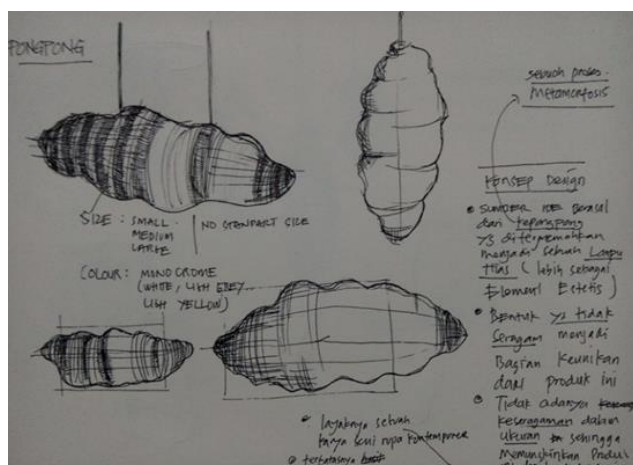 PONGPONG
SIZE : SMALL
MEDIUM
LARGE
NO STENPART SIZE
COLOUR : MINOCROME
(WHITE, LIGH GREY
LIGH YELLOW)
sebuah proses
Metamorfosis
KONSEP DESIGN
SUMBER IDE BERASAL
dari kepongpong
yg diterjemahkan
menjadi sebuah Lampu
Hias ( lebih sebagai
Element Estetis )
Bentuk yg tidak
Seragam menjadi
Bagian Keunikan
dari produk ini
Tidak adanya
keseragaman dalam
ukuran sehingga
Memungkinkan Produk
layaknya sebuah
karya seni rupa kontemporer
terbatasnya